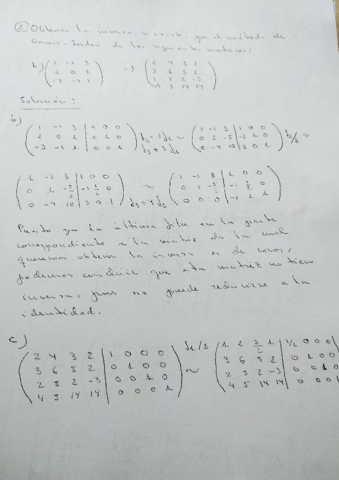 ② Obtener la inversa, si existe, por el método de
Gauss-Jordan de las siguientes matrices:
b) ( 1 -1 3 ; 2 0 1 ; -3 -1 1 ) ( 2 4 3 2 ; 3 6 5 2 ; 2 5 2 -3 ; 4 5 14 14 )
Solución:
b)
( 1 -1 3 | 1 0 0 ; 2 0 1 | 0 1 0 ; -3 -1 1 | 0 0 1 ) ~ ( 1 -1 3 | 1 0 0 ; 0 2 -5 | -2 1 0 ; 0 -4 10 | 3 0 1 ) ~
( 1 -1 3 | 1 0 0 ; 0 1 | -1 0 ; 0 -4 10 | 3 0 1 ) ~ ( 1 -1 3 | 1 0 0 ; 0 1 | -1 0 ; 0 0 0 | -1 2 1 )
Puesto que la última fila en la parte
correspondiente a la matriz de la cual
queremos obtener la inversa es de ceros,
podemos concluir que esta matriz no tiene
inversa, pues no puede reducirse a la
identidad.
c)
( 2 4 3 2 | 1 0 0 0 ; 3 6 5 2 | 0 1 0 0 ; 2 5 2 -3 | 0 0 1 0 ; 4 5 14 14 | 0 0 0 1 ) ~ ( 1 2 3/2 1 | 1/2 0 0 0 ; 3 6 5 2 | 0 1 0 0 ; 2 5 2 -3 | 0 0 1 0 ; 4 5 14 14 | 0 0 0 1 )